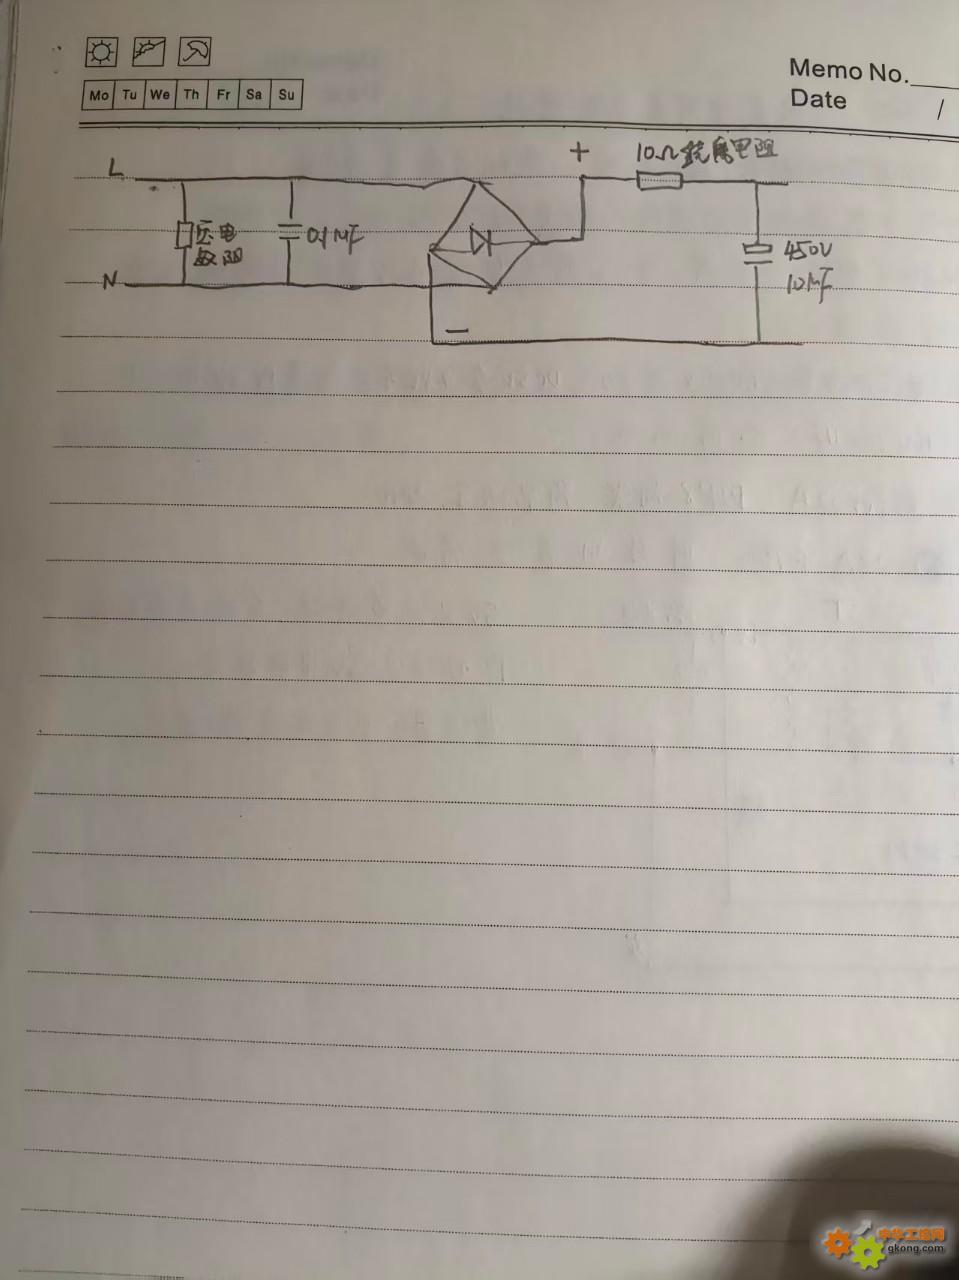 Memo No.
Mo Tu We Th Fr Sa Su
Date /
L
+
10Ω 绕 电阻
压电
敏阻
0.1MF
450V
10MF
N
—
中华工控网
gkong.com